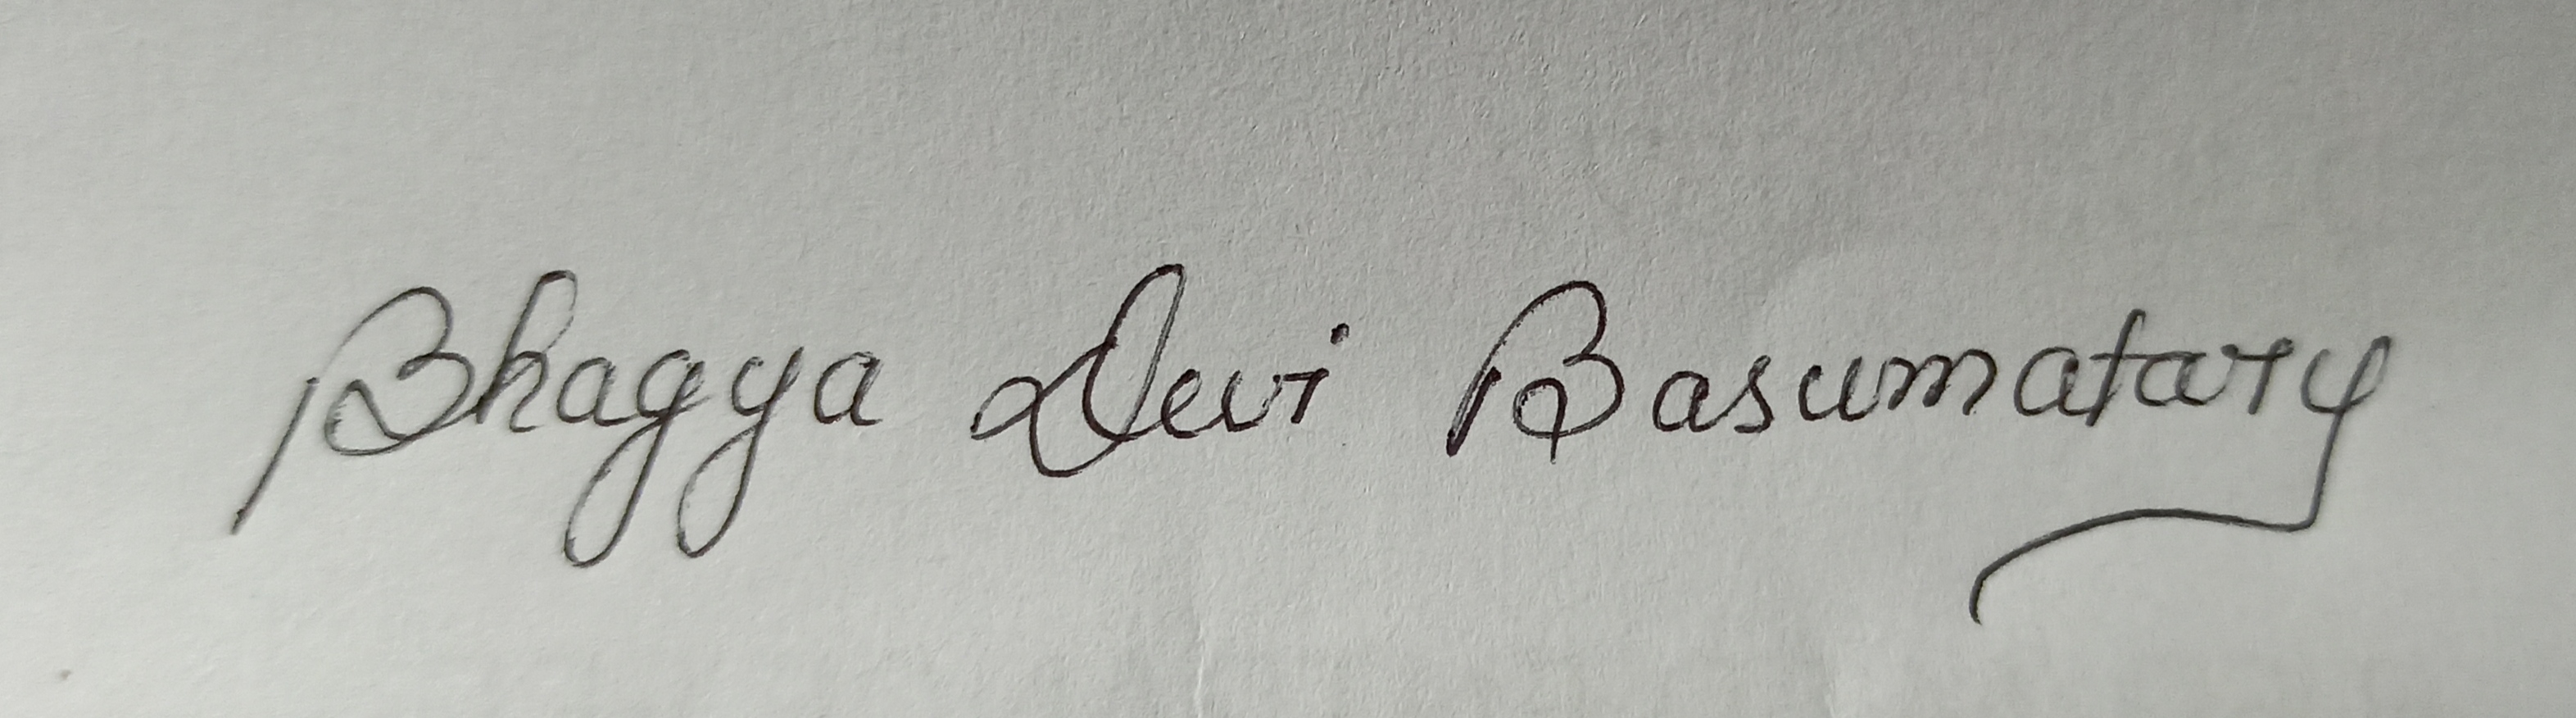 Bhagya Devi Basumatary